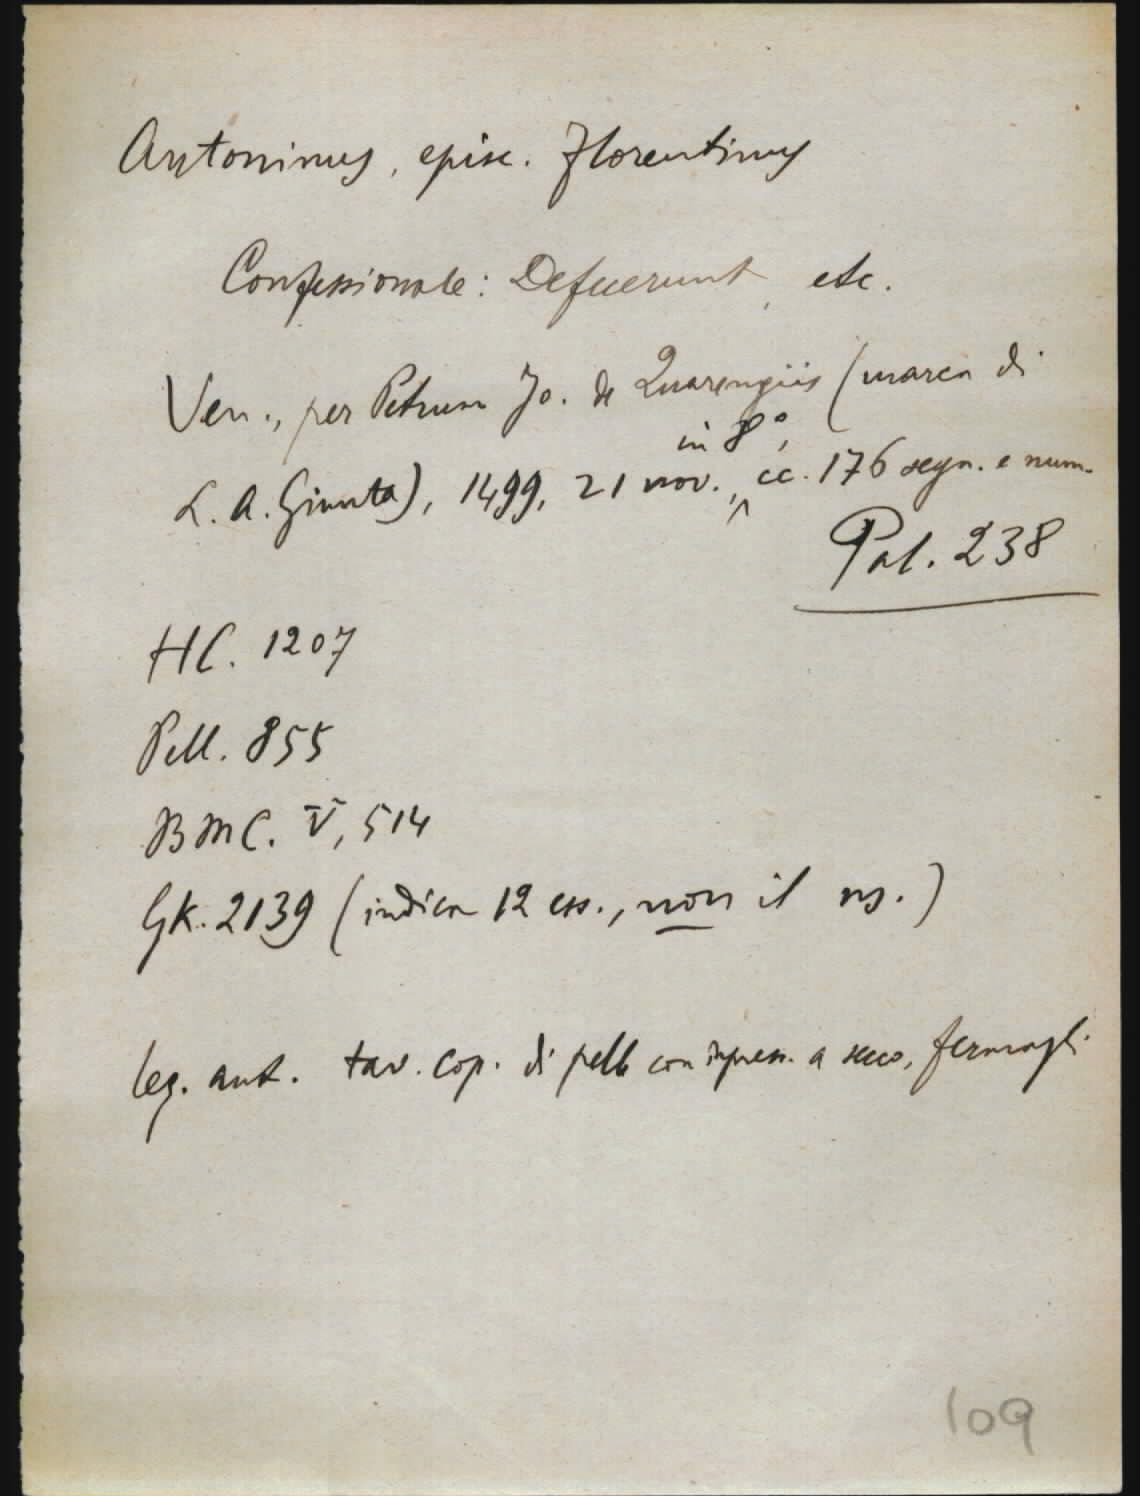 Antoninus, episc. Florentinus
Confessionale: Defuerunt, etc.
Ven., per Petrum Jo. de Quarengiis (marca di
L. A. Giunta), 1499, 21 nov., in 8°, cc. 176 segn. e num.
Pal. 238
HC. 1207
Pell. 855
BMC. V, 514
GK. 2139 (indica 12 ess., non il ns.)
leg. ant. tav. cop. di pelle con impress. a secco, fermagli.
109